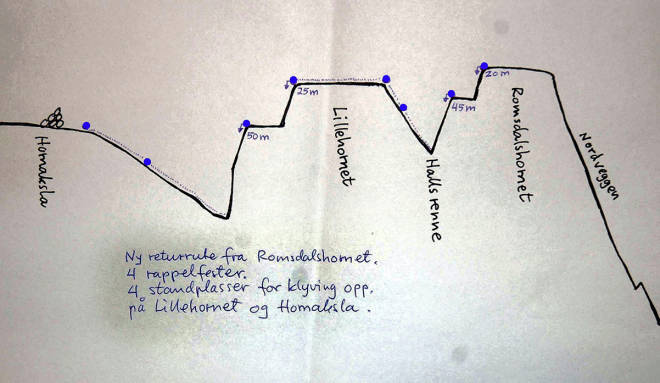 Homaksla
50m
25m
Lillehornet
Halls renne
45m
20m
Romsdalshornet
Nordveggen
Ny returrute fra Romsdalshornet.
4 rappelfester.
4 standplasser for klyving opp.
på Lillehornet og Homaksla.